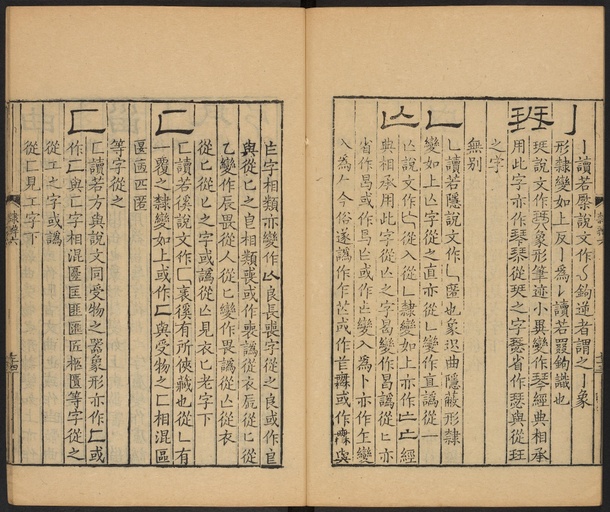 亅讀若橜說文作亅鉤逆者謂之亅象
形隸變如上反亅爲𠄌讀若罬鉤識也
珡說文作珡象形筆迹小異變作琴經典相承
用此字亦作琹琴從珡之字瑟省作瑟與從玨
之字
無别
乚讀若隱說文作乚匿也象迟曲隱蔽形隸
變如上亾字從之直亦從乚變作直譌從一
亾說文作亾從入從乚隸變如上亦作亡亡經
典相承用此字從亾之字曷變作曷譌從匕亦
省作曷或作曷匃或作匃變入爲卜亦作乍變
入爲𠂉今俗遂譌作乍或作 或作 與
字相類亦變作 良長喪字從之良或作
與從匕之皀相類喪或作喪譌從衣屍從匕從
乙變作辰畏從人從匕變作畏譌從亾從衣
從匕從亾之字或譌從亾見衣匕老字下
匸讀若徯說文作匸衺徯有所俠藏也從乚有
一覆之隸變如上或作匸與受物之匚相混區
匽匧匹匿
等字從之
匚讀若方與說文同受物之器象形亦作匚或
作匸與匸字相混匷匡匪匯匠柩匱等字從之
從工之字或譌
從匚見工字下
隸辨六